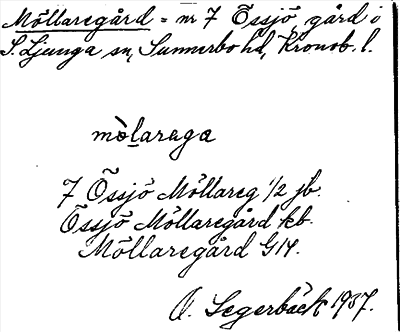 Möllaregård = nr 7 Össjö, gård i
S. Ljunga sn, Sunnerbo hd, Kronob. l.
mòlaraga
7 Össjö Möllareg 1/2 jb.
Össjö Möllaregård kb.
Möllaregård G14.
O. Segerbäck 1937.